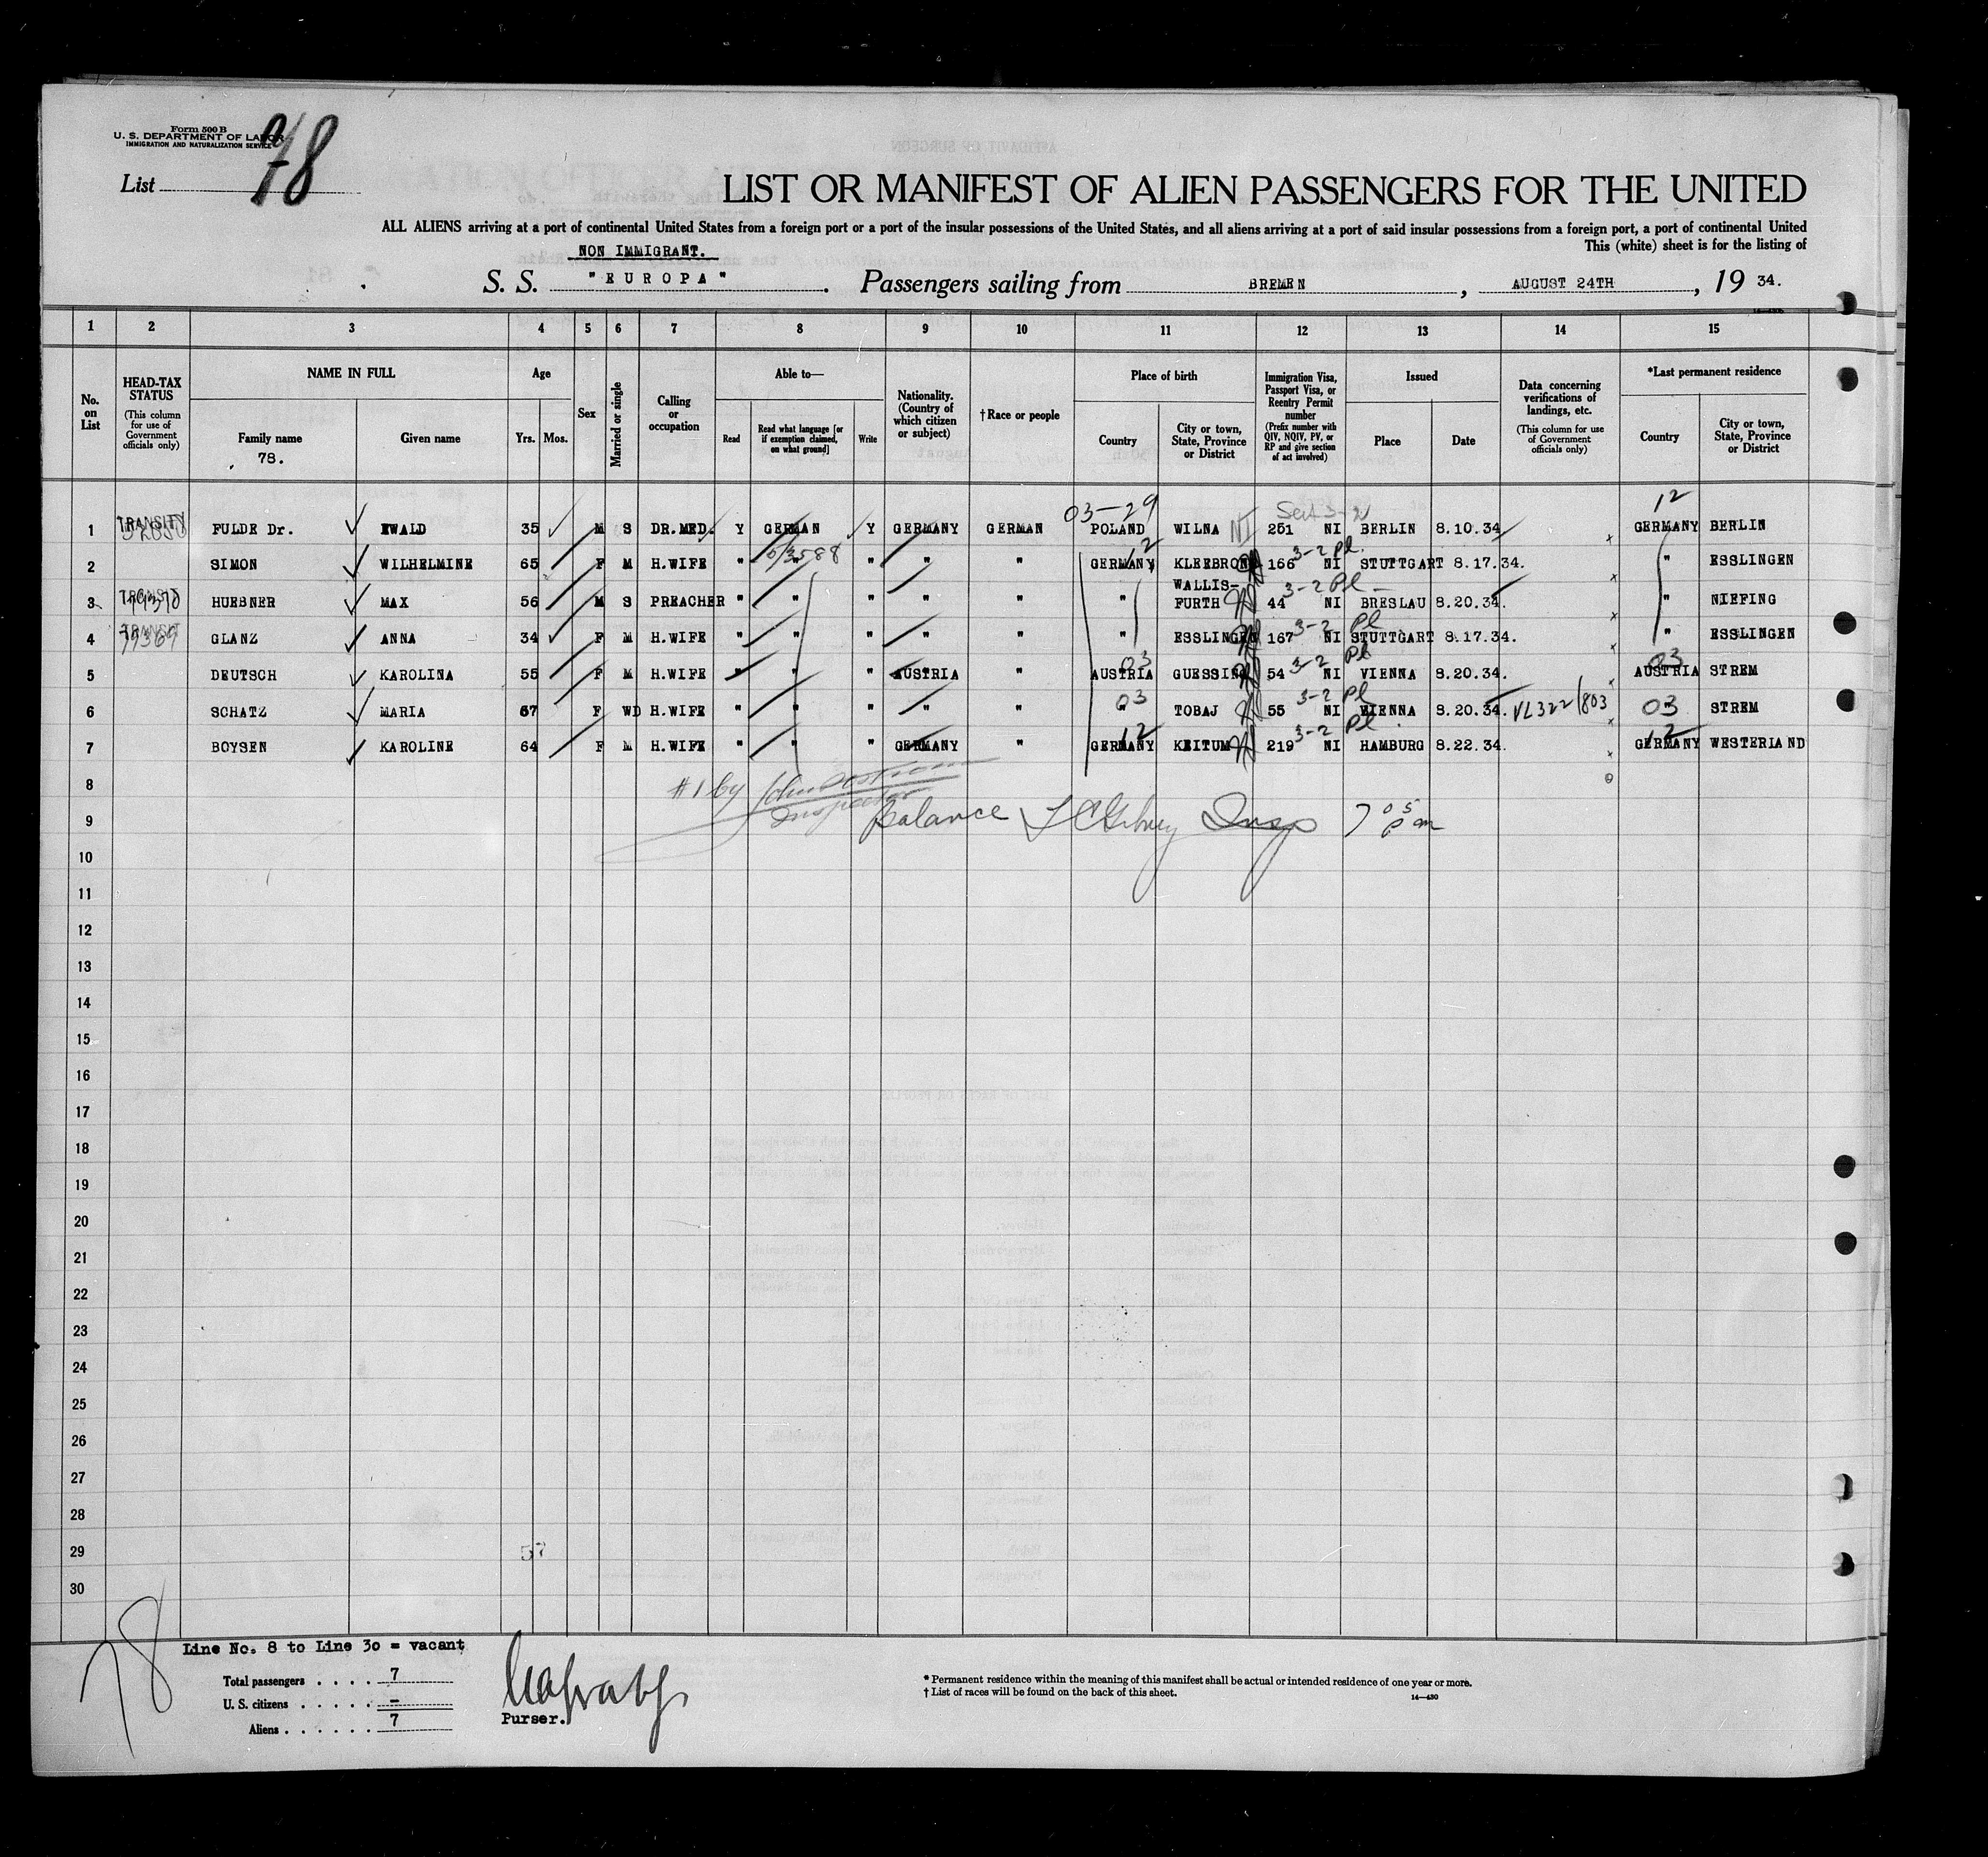 Form 500 B
U. S. DEPARTMENT OF LABOR
IMMIGRATION AND NATURALIZATION SERVICE
List 78
LIST OR MANIFEST OF ALIEN PASSENGERS FOR THE UNITED
ALL ALIENS arriving at a port of continental United States from a foreign port or a port of the insular possessions of the United States, and all aliens arriving at a port of said insular possessions from a foreign port, a port of continental United
This (white) sheet is for the listing of
NON IMMIGRANT.
S. S. "EUROPA" . Passengers sailing from BREMEN , AUGUST 24TH , 19 34.
1 2 3 4 5 6 7 8 9 10 11 12 13 14 15
No. on List
HEAD-TAX STATUS (This column for use of Government officials only)
NAME IN FULL
Family name
78.
Given name
Age
Yrs. Mos.
Sex
Married or single
Calling or occupation
Able to—
Read
Read what language [or if exemption claimed, on what ground]
Write
Nationality. (Country of which citizen or subject)
†Race or people
Place of birth
Country
City or town, State, Province or District
Immigration Visa, Passport Visa, or Reentry Permit number (Prefix number with QIV, NQIV, PV, or RP and give section of act involved)
Issued
Place
Date
Data concerning verifications of landings, etc. (This column for use of Government officials only)
*Last permanent residence
Country
City or town, State, Province or District
03-29 12
1 TRANSIT FULDE Dr. EWALD 35 M S DR.MED. Y GERMAN Y GERMANY GERMAN POLAND WILNA NI 251 NI BERLIN 8.10.34 GERMANY BERLIN
2 SIMON WILHELMINE 65 F M H.WIFE " " " " " 12 GERMANY KLEEBRONN 166 3-2 Pl NI STUTTGART 8.17.34. " ESSLINGEN
3 HUEBNER MAX 56 M S PREACHER " " " " " " WALLIS-FURTH 44 3-2 Pl NI BRESLAU 8.20.34. " NIEFING
4 TRANSIT GLANZ ANNA 34 F M H.WIFE " " " " " " ESSLINGEN 167 3-2 Pl NI STUTTGART 8.17.34. " ESSLINGEN
5 DEUTSCH KAROLINA 55 F M H.WIFE " " " AUSTRIA " 03 AUSTRIA GUESSING 54 3-2 Pl NI VIENNA 8.20.34. 03 AUSTRIA STREM
6 SCHATZ MARIA 67 F WD H.WIFE " " " " " 03 TOBAJ 55 3-2 Pl NI VIENNA 8.20.34. VL322/803 03 STREM
7 BOYSEN KAROLINE 64 F M H.WIFE " " " GERMANY " 12 GERMANY KEITUM 219 3-2 Pl NI HAMBURG 8.22.34. 12 GERMANY WESTERLAND
8
#1 by John
Inspector
9 Balance Insp 7 05 pm
10
11
12
13
14
15
16
17
18
19
20
21
22
23
24
25
26
27
28
29 57
30
78
Line No. 8 to Line 30 = vacant
Total passengers . . . . 7
U. S. citizens . . . . . –
Aliens . . . . . . 7
Purser.
* Permanent residence within the meaning of this manifest shall be actual or intended residence of one year or more.
† List of races will be found on the back of this sheet.
14—430